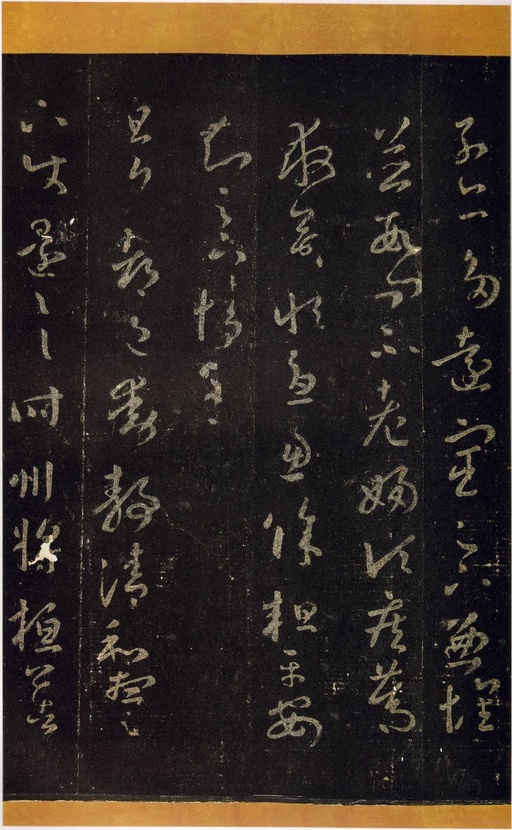 子亦多遠宦足下兼懷
並數問不老婦頃疾篤
救命恒憂慮餘粗平安
知足下情至
旦夕都邑動靜清和想足
下使還一一時州將桓公告